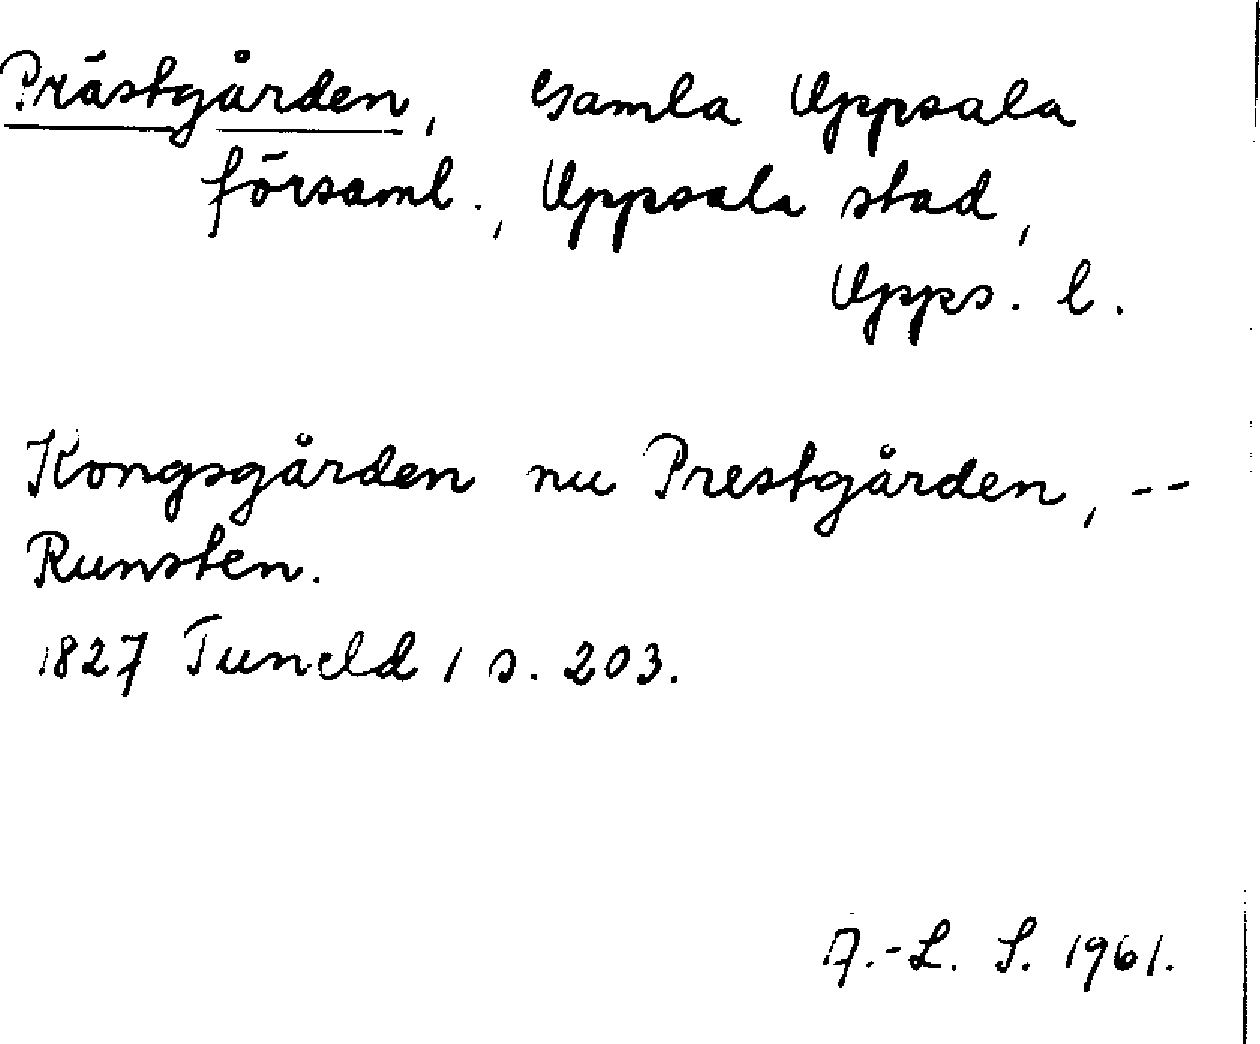 Prästgården, Gamla Uppsala
församl., Uppsala stad,
Upps. l.
Kongsgården nu Prestgården, --
Runsten.
1827 Tuneld 1 s. 203.
A.-L. S. 1961.